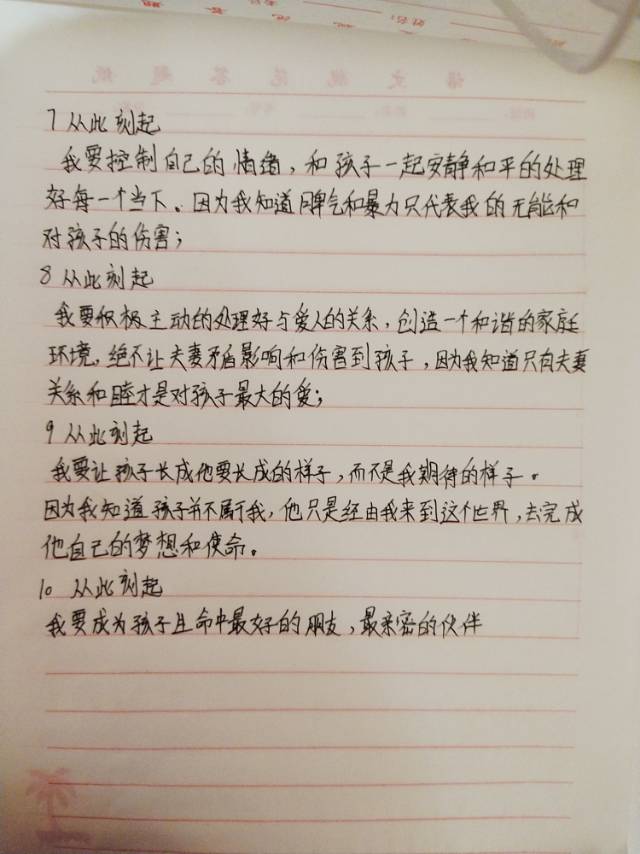 7 从此刻起
我要控制自己的情绪，和孩子一起安静和平的处理
好每一个当下。因为我知道脾气和暴力只代表我的无能和
对孩子的伤害；
8 从此刻起
我要积极主动的处理好与爱人的关系，创造一个和谐的家庭
环境，绝不让夫妻矛盾影响和伤害到孩子，因为我知道只有夫妻
关系和睦才是对孩子最大的爱；
9 从此刻起
我要让孩子长成他要长成的样子，而不是我期待的样子。
因为我知道孩子并不属于我，他只是经由我来到这个世界，去完成
他自己的梦想和使命。
10 从此刻起
我要成为孩子生命中最好的朋友，最亲密的伙伴